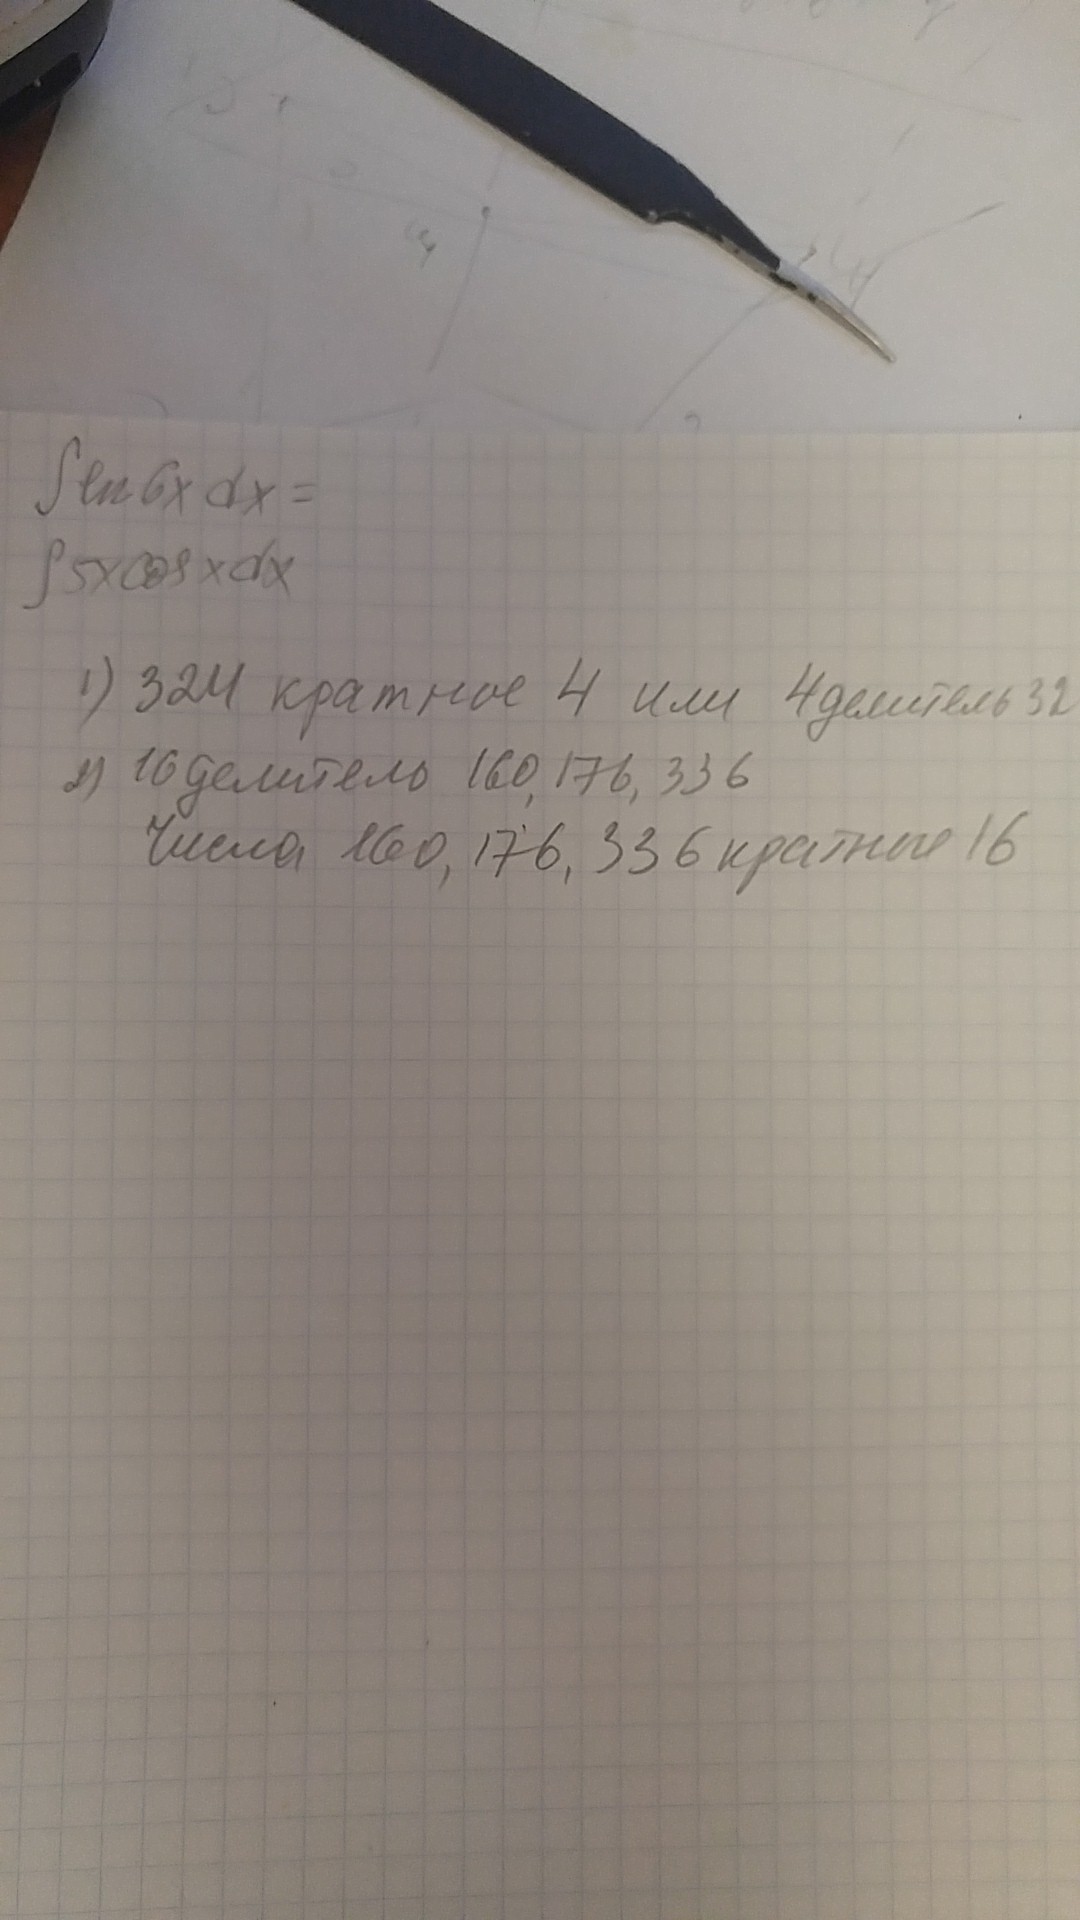 ∫ln6x dx=
∫5xcosxdx
1) 324 кратное 4 или 4делитель 32
2) 16делитель 160, 176, 336
Числа 160, 176, 336 кратные 16